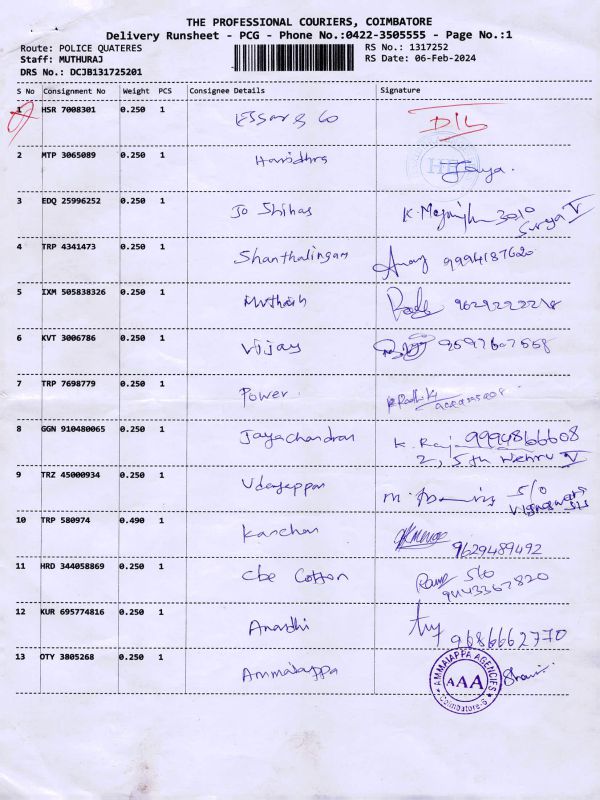 THE PROFESSIONAL COURIERS, COIMBATORE
Delivery Runsheet - PCG - Phone No.:0422-3505555 - Page No.:1
Route: POLICE QUATERES
RS No.: 1317252
Staff: MUTHURAJ
RS Date: 06-Feb-2024
DRS No.: DCJB131725201
S No Consignment No Weight PCS Consignee Details Signature
1 HSR 7008301 0.250 1 Essar & Co D/L
2 MTP 3065089 0.250 1 Jaya.
3 EDQ 25996252 0.250 1 Jo Shibas
4 TRP 4341473 0.250 1 Shanthalingam 9994187620
5 IXM 505838326 0.250 1 9629222218
6 KVT 3006786 0.250 1 Vijay 9597607558
7 TRP 7698779 0.250 1 Power
8 GGN 910480065 0.250 1 Jayachandran K. Raja 9994866608
2, 5th Nehru
9 TRZ 45000934 0.250 1 Udayappan S/O
10 TRP 580974 0.490 1 Kanchan 9629489492
11 HRD 344058869 0.250 1 Cbe Cotton S/o
9443367820
12 KUR 695774816 0.250 1 Anandhi 9686662770
13 OTY 3805268 0.250 1 Ammaiappa
AMMAIAPPA AGENCIES
AAA
Coimbatore-6